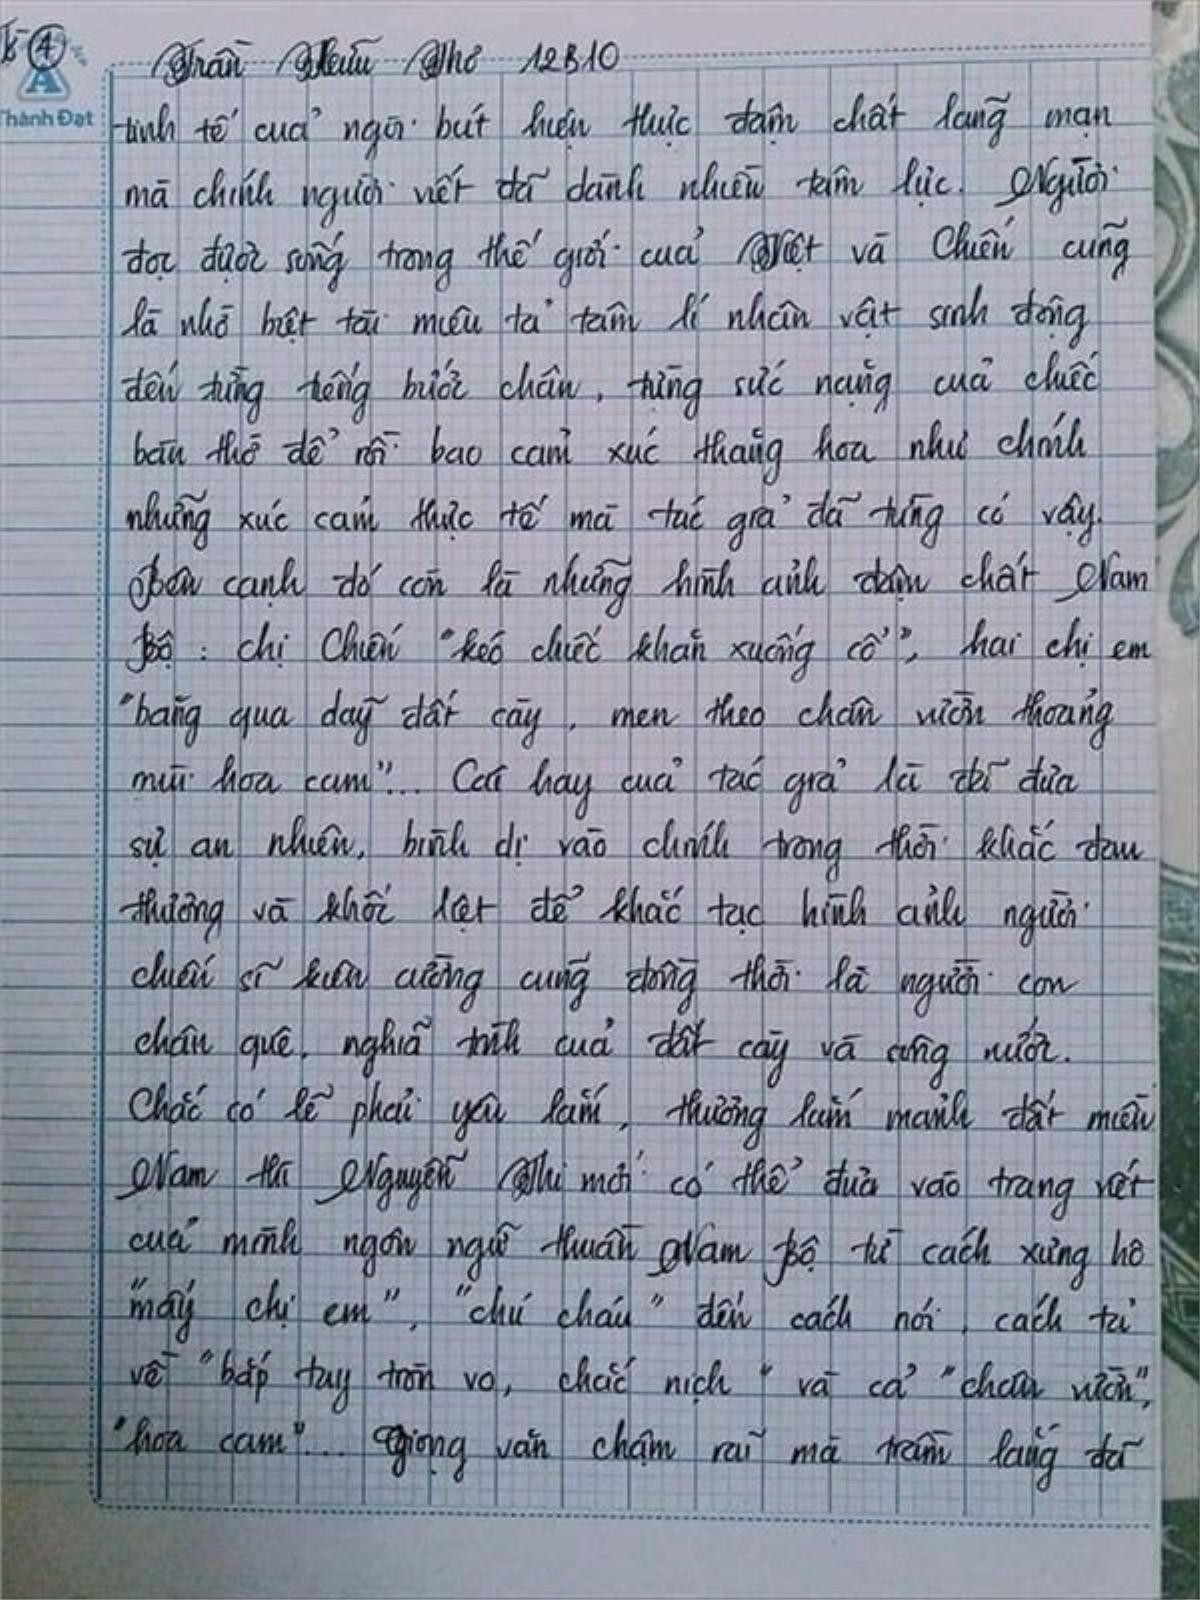 4
Thành Đạt
Trần Hữu Thơ 12B10
tinh tế của ngòi bút hiện thực đậm chất lãng mạn
mà chính người viết đã dành nhiều tâm lực. Người
đọc được sống trong thế giới của Việt và Chiến cũng
là nhờ biệt tài miêu tả tâm lí nhân vật sinh động
đến từng tiếng bước chân, từng sức nặng của chiếc
bàn thờ để rồi bao cảm xúc thăng hoa như chính
những xúc cảm thực tế mà tác giả đã từng có vậy.
Bên cạnh đó còn là những hình ảnh đậm chất Nam
Bộ : chị Chiến "kéo chiếc khăn xuống cổ", hai chị em
"băng qua dãy đất cày, men theo chân vườn thoảng
mùi hoa cam"... Cái hay của tác giả là đã đưa
sự an nhiên, bình dị vào chính trong thời khắc đau
thương và khốc liệt để khắc tạc hình ảnh người
chiến sĩ kiên cường cũng đồng thời là người con
chân quê, nghĩa tình của đất cày và sông nước.
Chắc có lẽ phải yêu lắm, thương lắm mảnh đất miền
Nam thì Nguyễn Thi mới có thể đưa vào trang viết
của mình ngôn ngữ thuần Nam Bộ từ cách xưng hô
"mấy chị em", "chú cháu" đến cách nói, cách tả
về "bắp tay tròn vo, chắc nịch" và cả "chân vườn",
"hoa cam"... Giọng văn chậm rãi mà trầm lắng đã